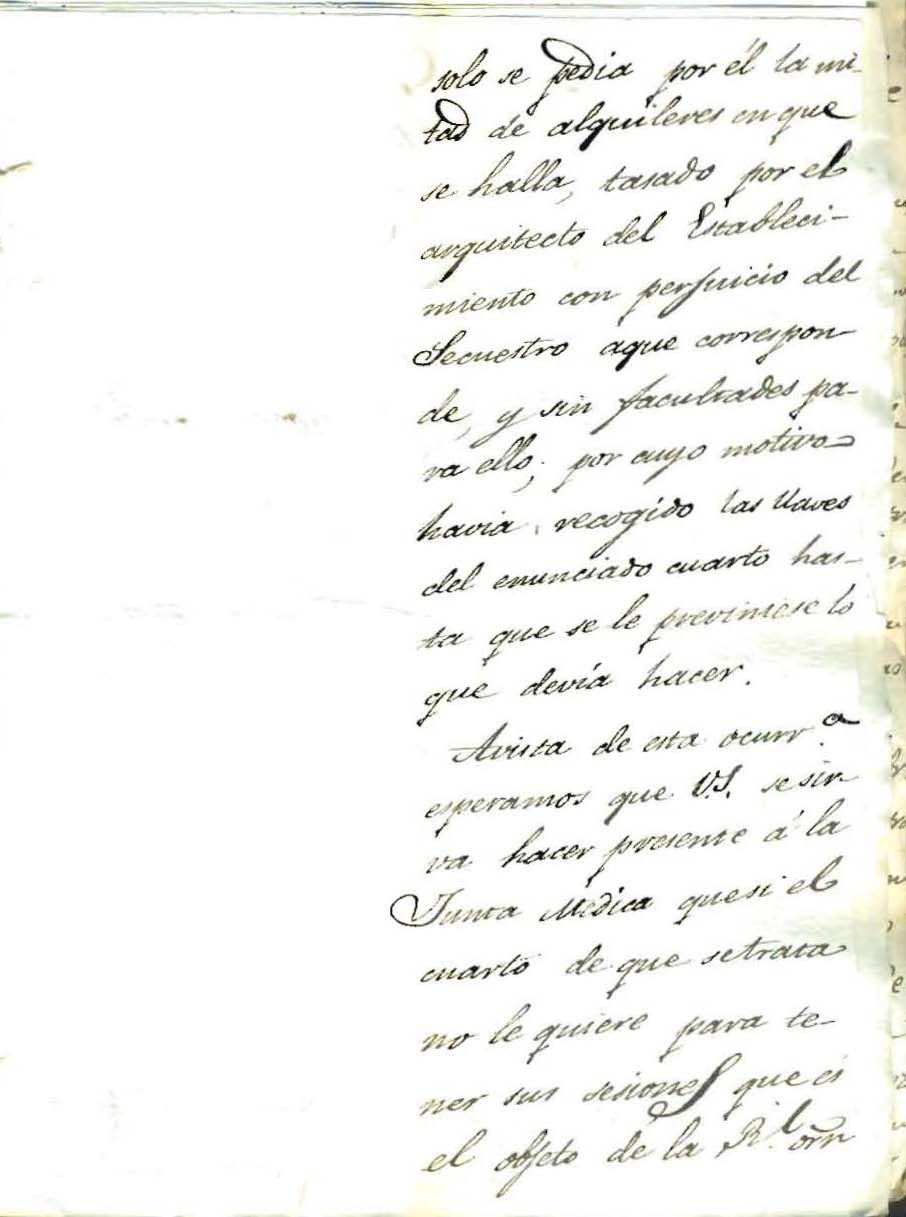 solo se pedia por él la mi-
tad de alquileres en que
se halla, tasado por el
arquitecto del Estableci-
miento con perjuicio del
Secuestro aque correspon-
de, y sin facultades pa-
ra ello; por cuyo motivo
havia recogido las llaves
del enunciado cuarto has-
ta que se le previniese lo
que devía hacer.
Avista de esta ocurr.a
esperamos que V.S. se sir-
va hacer presente á la
Junta Medica quesi el
cuarto de que setrata
no le quiere para te-
ner sus sesiones que es
el objeto de la R.l orn